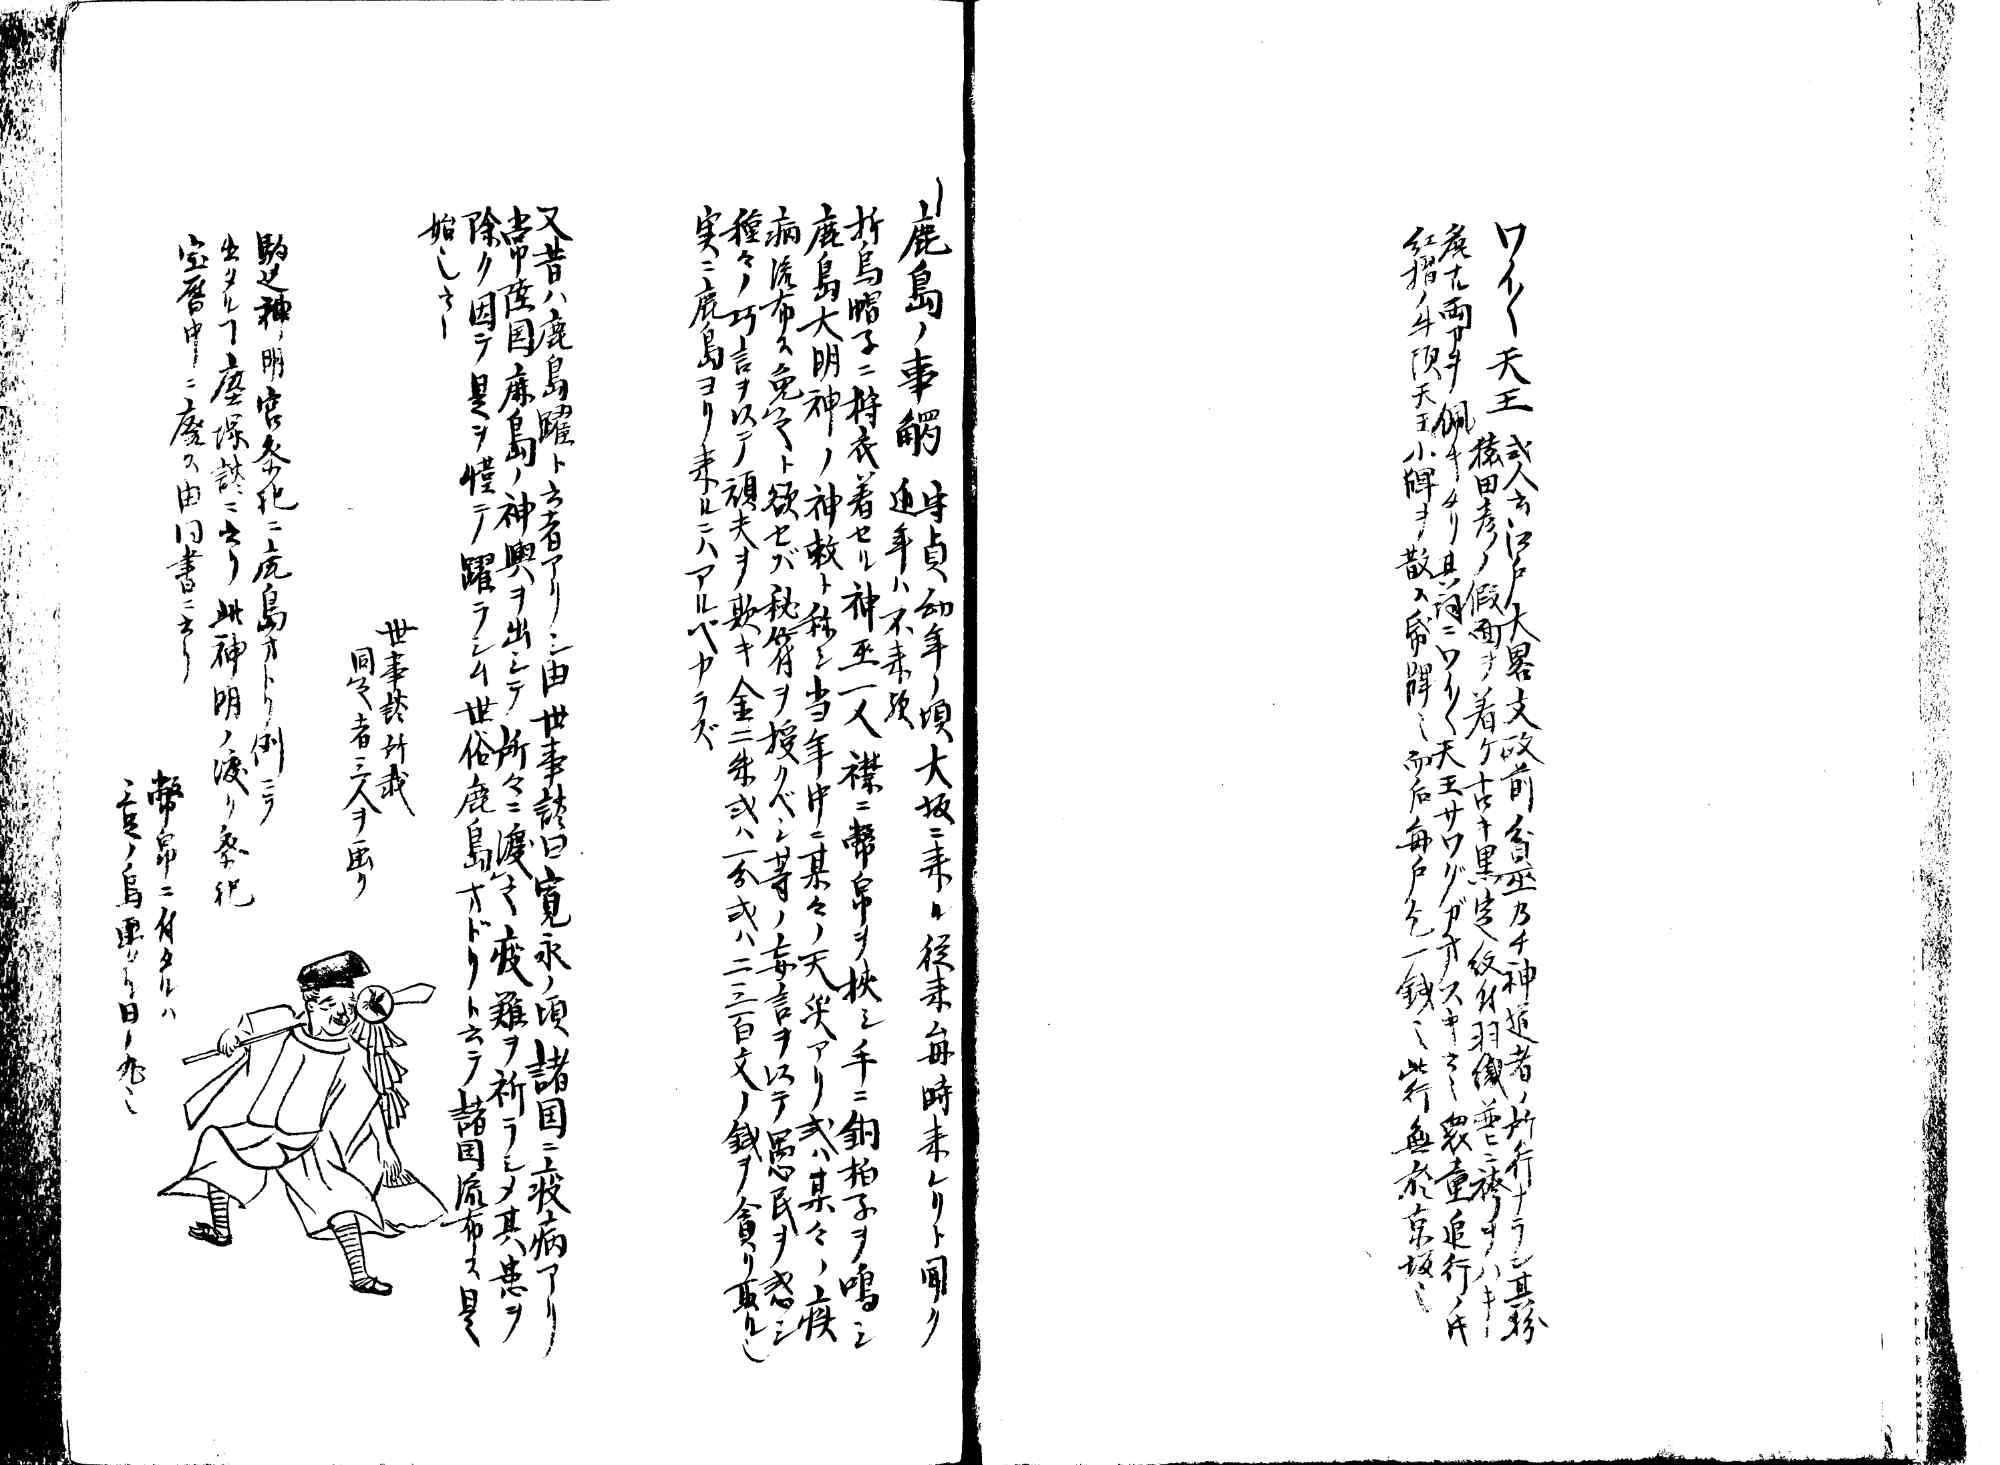 ワイ〱天王 或人云江戸大畧文政前貧巫乃チ神道者ノ所行ナラン其扮
猿田彦ノ假面ヲ着ケ古キ黒定紋付羽織並ニ袴ヲハキ
麁ナル両刀ヲ佩キタリ其詞ニワイ〱天王サワグガオスキ云々衆童追行ノ時
紅摺ノ牛頭天王小牌ヲ散ス 而后毎戸乞一銭也此行無於京坂也
一鹿島ノ事觸 守貞幼年ノ頃大坂ニ来ル従来毎時来レリト聞ク
近年ハ不来歟
折烏帽子ニ狩衣着セル神巫一人襟ニ幣帛ヲ挾ミ手ニ銅拍子ヲ鳴シ
鹿島大明神ノ神敕ト称シ当年中ニ某々ノ天災アリ或ハ某々ノ疾
病流布ス免ント欲セバ秘符ヲ授クベシ等ノ妄言ヲ以テ愚民ヲ惑シ
種々ノ巧言ヲ以テ頑夫ヲ欺キ金二朱或ハ一分或ハ二三百文ノ銭ヲ貪リ取ル也
実ニ鹿島ヨリ来ルニハアルベカラズ
又昔ハ鹿島躍ト云者アリシ由世事談曰寛永ノ頃諸国ニ疫病アリ
常陸国鹿島ノ神輿ヲ出シテ所々ニ渡シ疫難ヲ祈ラシメ其患ヲ
除ク因テ是ヲ 躍ラシム世俗鹿島オドリト云テ諸国流布ス是
始也云々
世事談所載
同者三人ヲ画リ
駒込神明宮祭祀ニ鹿島オトリ例ニテ
出タルコト塵塚談ニ云リ此神明ノ渡リ祭祀
宝暦中ニ廃ス由同書ニ云リ
幣帛ニ付タルハ
三足ノ烏画ケリ日ノ丸也